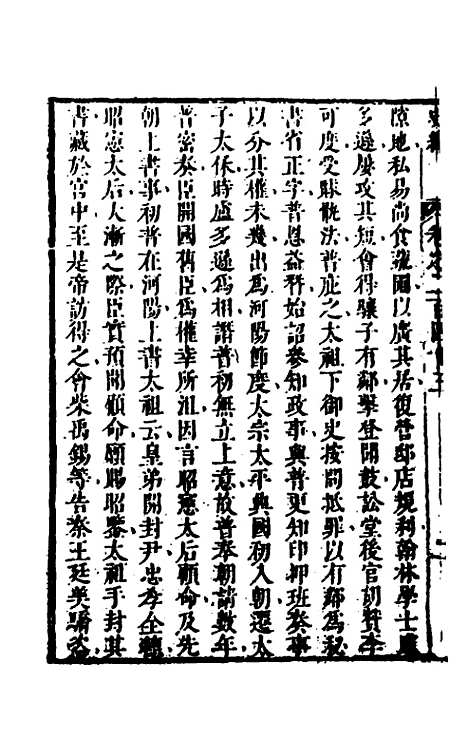 隙地私易尚食蔬圃以廣其居復營邸店規利翰林學士盧
多遜屢攻其短會得驤子有鄰擊登聞鼓訟堂後官胡贊李
可度受賕骫法普庇之太祖下御史按問抵罪以有鄰爲秘
書省正字普恩益始詔參知政事與普更知印押班奏事
以分其權未幾出爲河陽節度太宗太平興國初入朝遷太
子太保時盧多遜爲相譖普初無立上意故普奉朝請數年
普密奏臣開國舊臣爲權幸所沮因言昭憲太后顧命及先
朝上書事初普在河陽上書太祖云皇弟開封尹忠孝全德
昭憲太后大漸之際臣實預聞顧命願賜昭鑒太祖手封其
書藏於宮中至是帝訪得之會柴禹錫等告秦王廷美驕恣